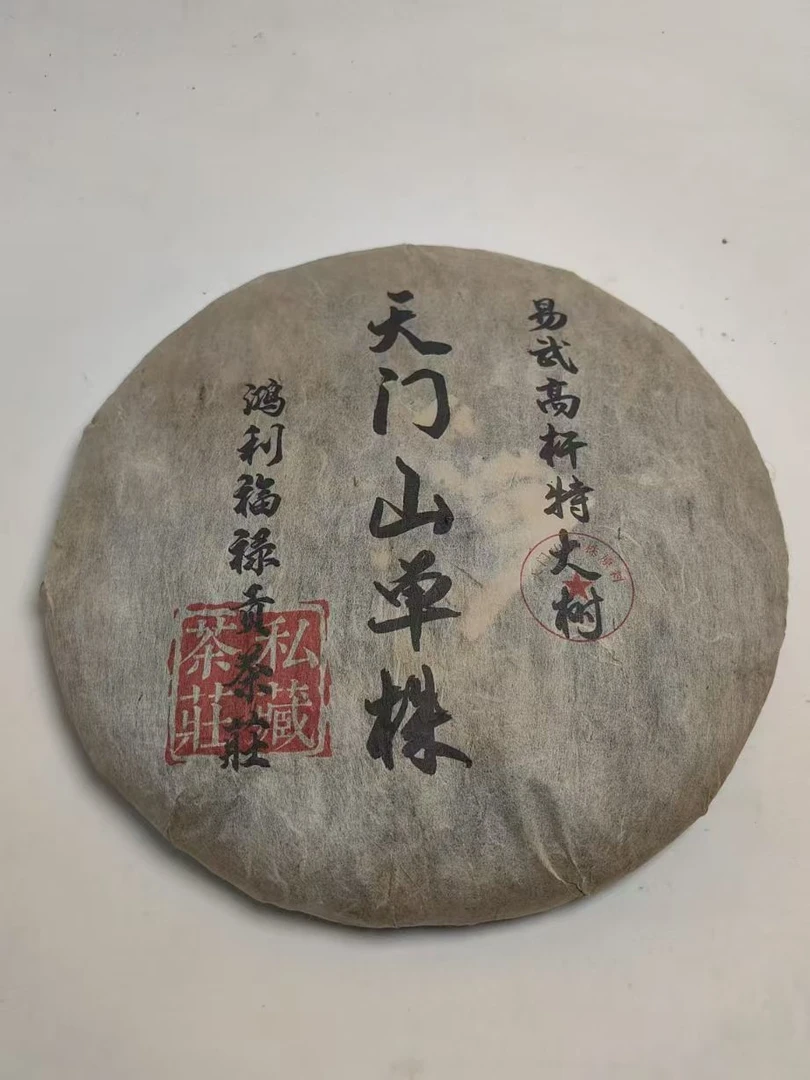 易武高杆特大树
天门山单株
鸿利福禄贡茶莊
私藏
茶莊